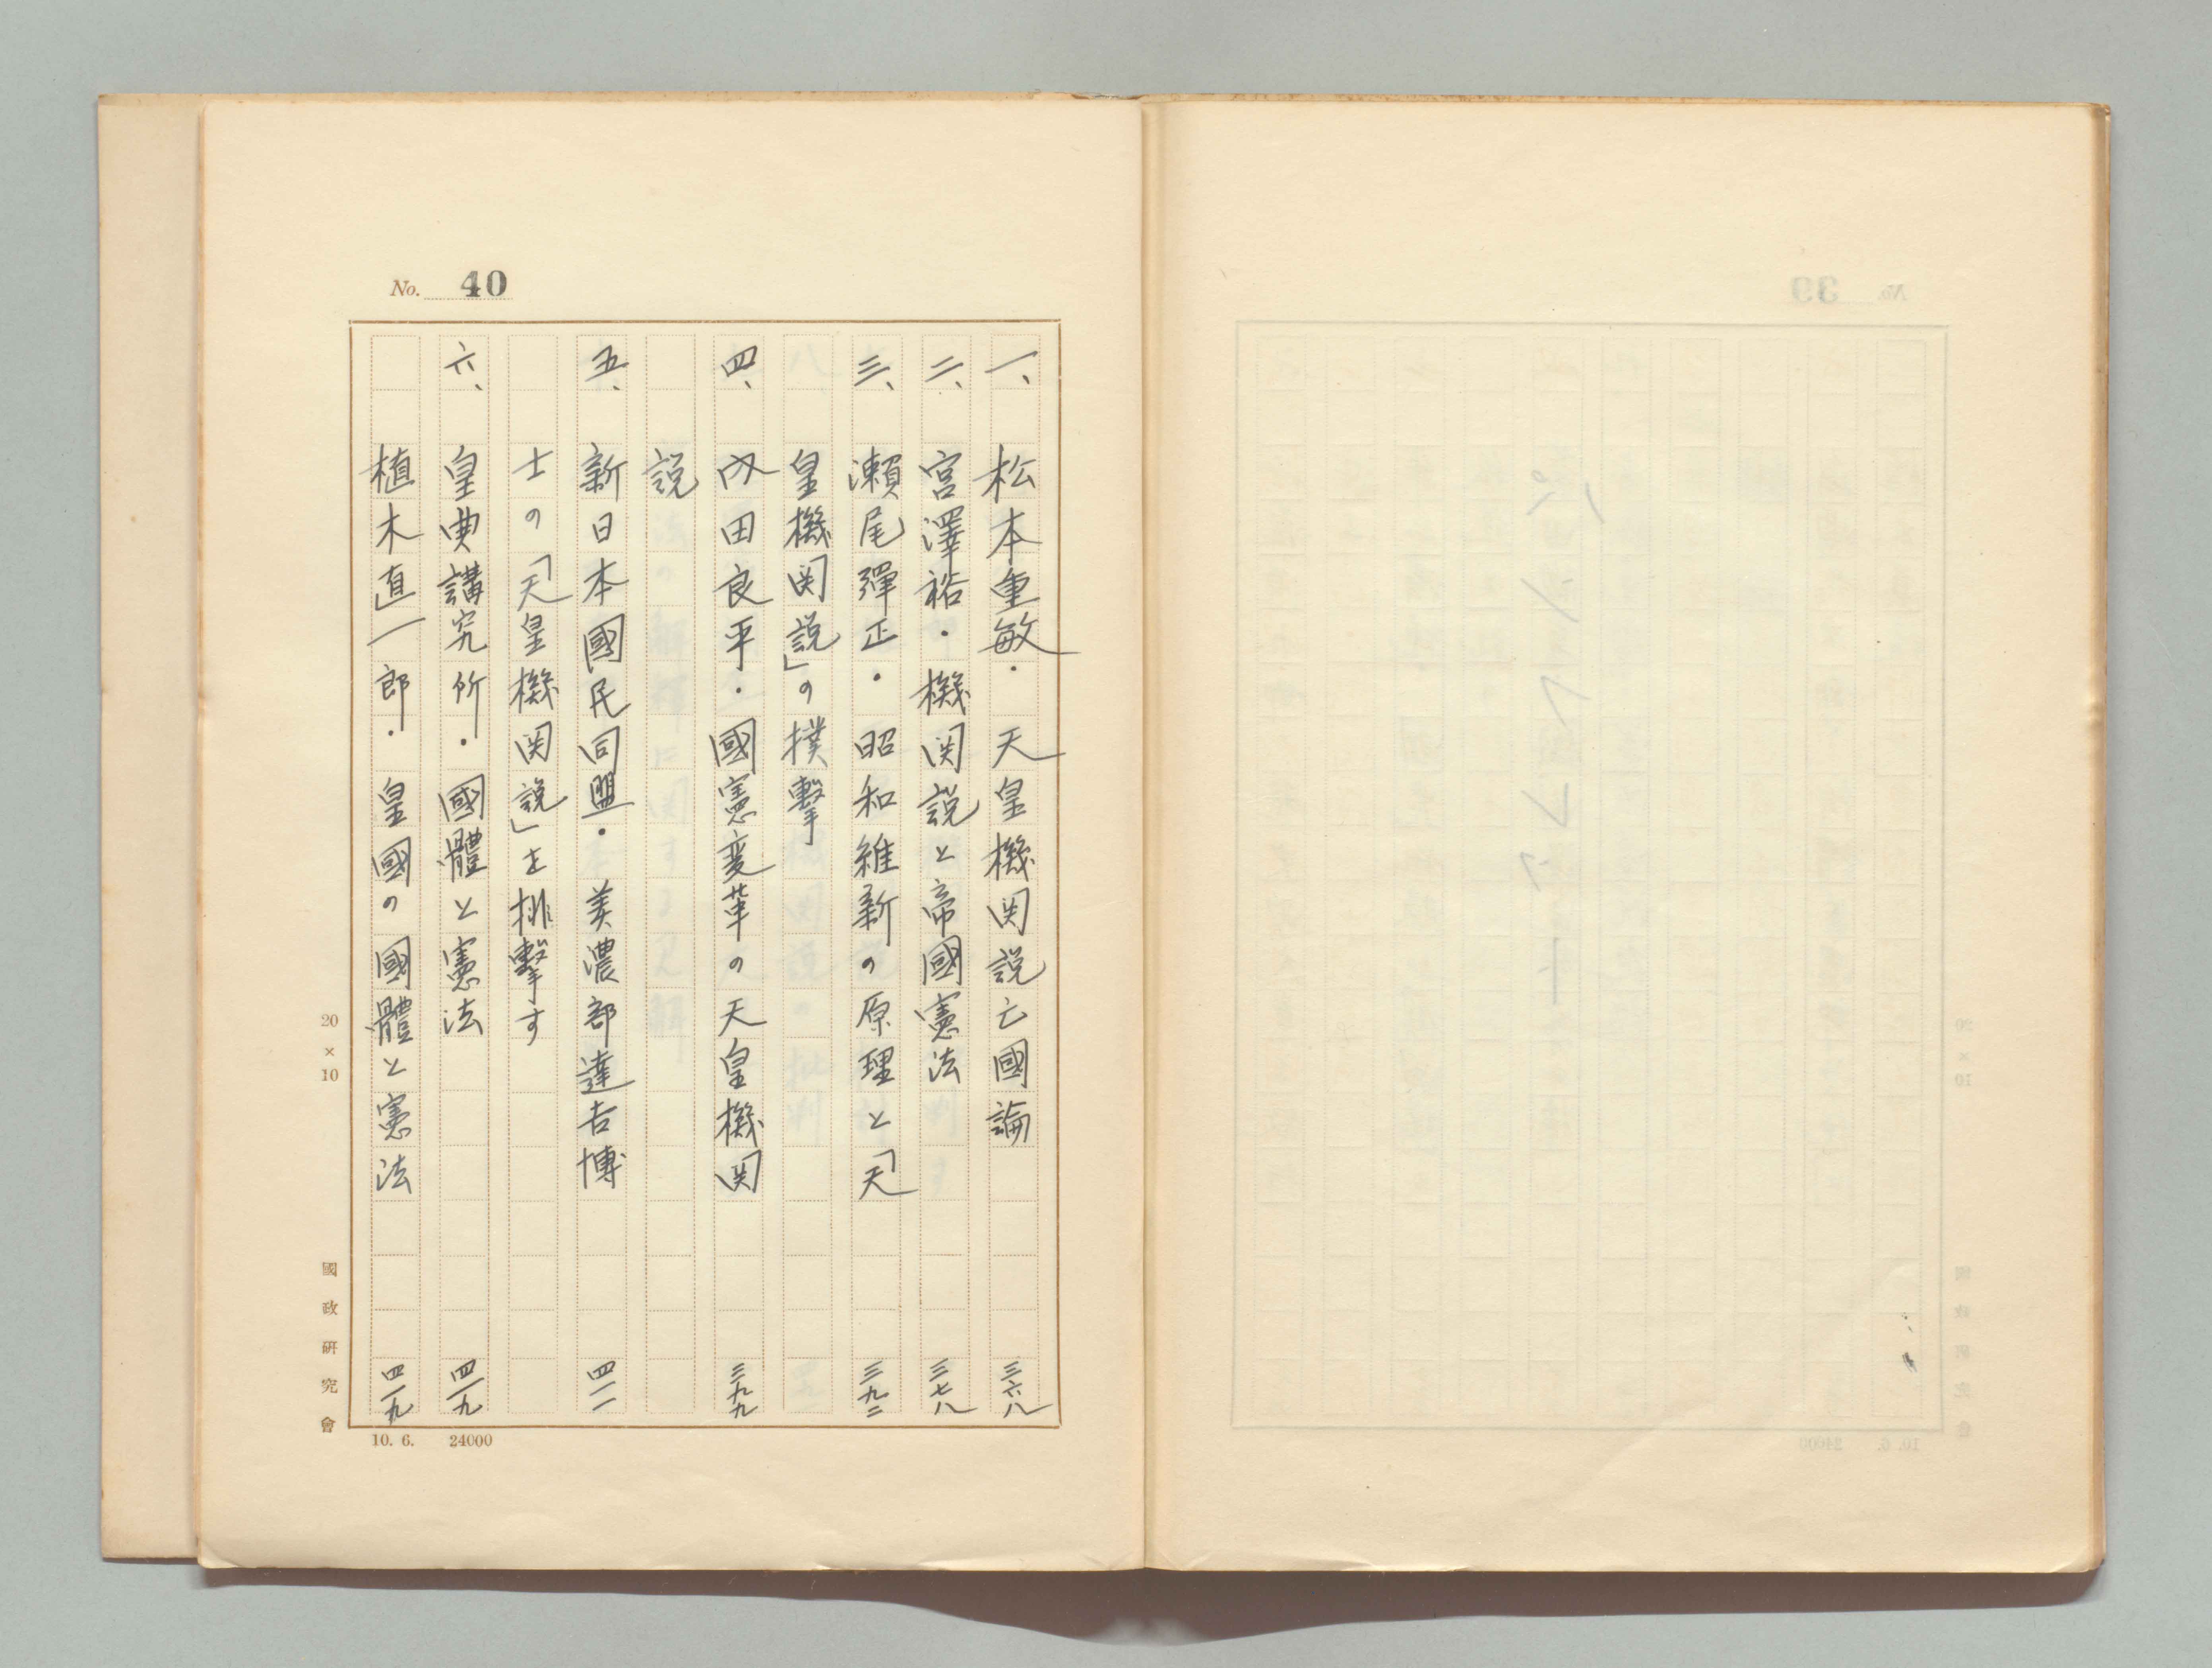 No. 40
一、松本重敏・天皇機関説亡國論 三六八
二、宮澤裕・機関説と帝國憲法 三七八
三、瀬尾彈正・昭和維新の原理と「天 三九二
皇機関説」の撲擊
四、内田良平・國憲変革の天皇機関 三九九
説
五、新日本國民同盟・美濃部達吉博 四一一
士の「天皇機関説」を排擊す
六、皇典講究所・國體と憲法 四一九
植木直一郎・皇國の國體と憲法 四一九
20×10
國政研究會
10. 6. 24000